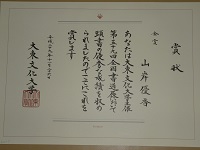 賞状
金賞
山岸優香
あなたは大東文化大学主催
第五十九回全国書道展において
頭書の優秀な成績を収め
られましたのでここにこれを
賞します
大東文化大学